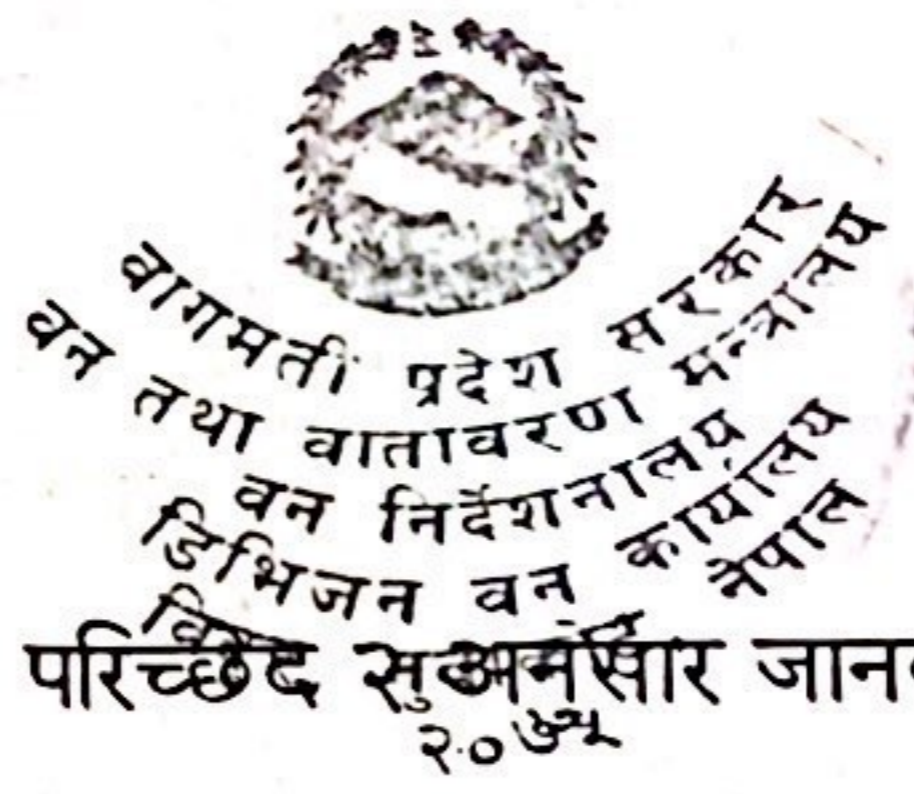 वागमती प्रदेश सरकार
वन तथा वातावरण मन्त्रालय
वन निर्देशनालय
डिभिजन वन कार्यालय
नेपाल
परिच्छेद